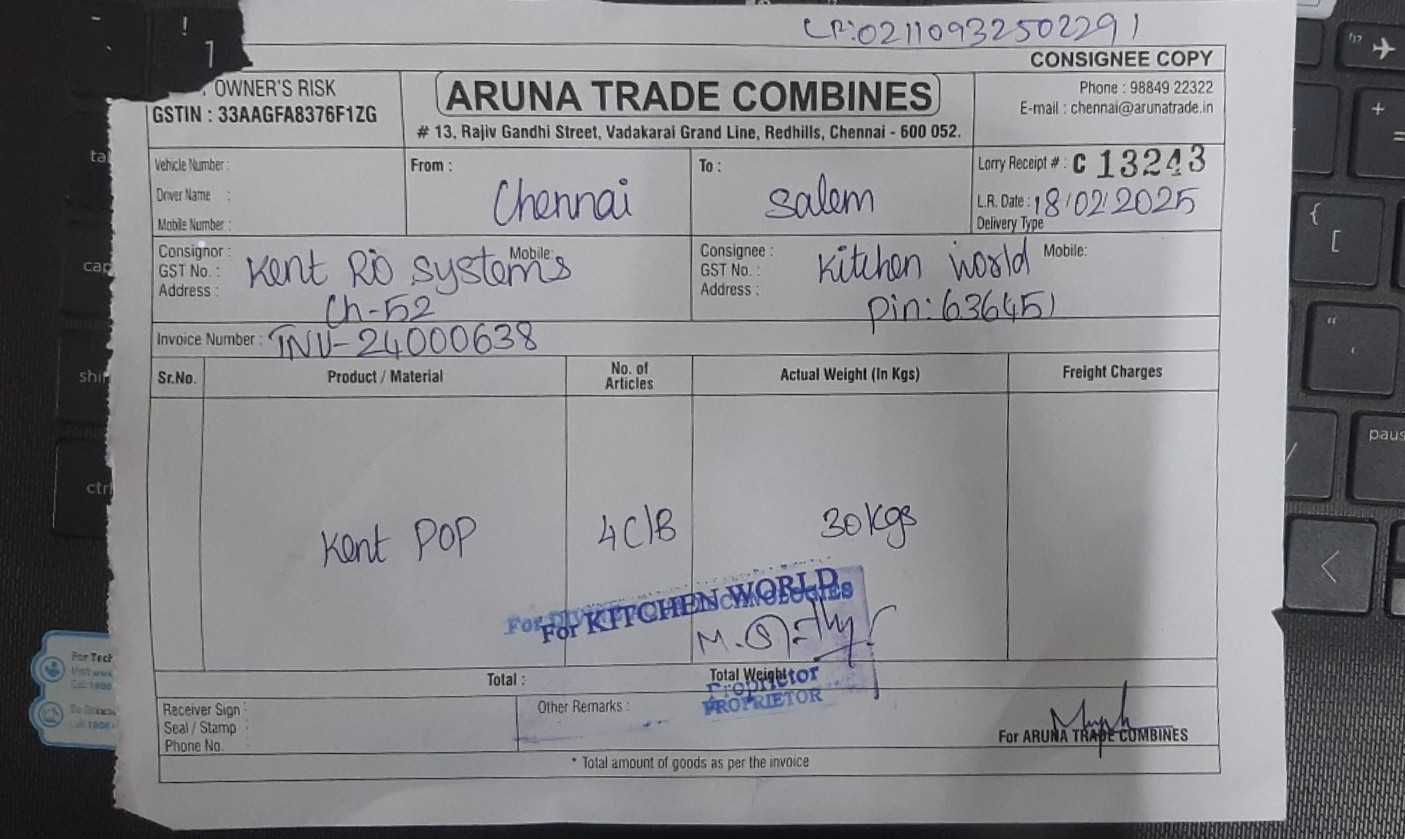 LR:02110932502291
CONSIGNEE COPY
OWNER'S RISK
GSTIN : 33AAGFA8376F1ZG
ARUNA TRADE COMBINES
# 13, Rajiv Gandhi Street, Vadakarai Grand Line, Redhills, Chennai - 600 052.
Phone : 98849 22322
E-mail : chennai@arunatrade.in
Vehicle Number :
Driver Name :
Mobile Number :
From :
Chennai
To :
Salem
Lorry Receipt # : C 13243
L.R. Date : 18/02/2025
Delivery Type
Consignor :
GST No. :
Address :
Mobile:
Kent RO Systems
Ch-52
Consignee :
GST No. :
Address :
Mobile:
Kitchen World
Pin: 636451
Invoice Number : INV-24000638
Sr.No. Product / Material No. of Articles Actual Weight (In Kgs) Freight Charges
Kent POP 4C/B 30kgs
For KITCHEN WORLD
Total : Total Weight
Proprietor
PROPRIETOR
Receiver Sign :
Seal / Stamp :
Phone No.
Other Remarks :
For ARUNA TRADE COMBINES
* Total amount of goods as per the invoice